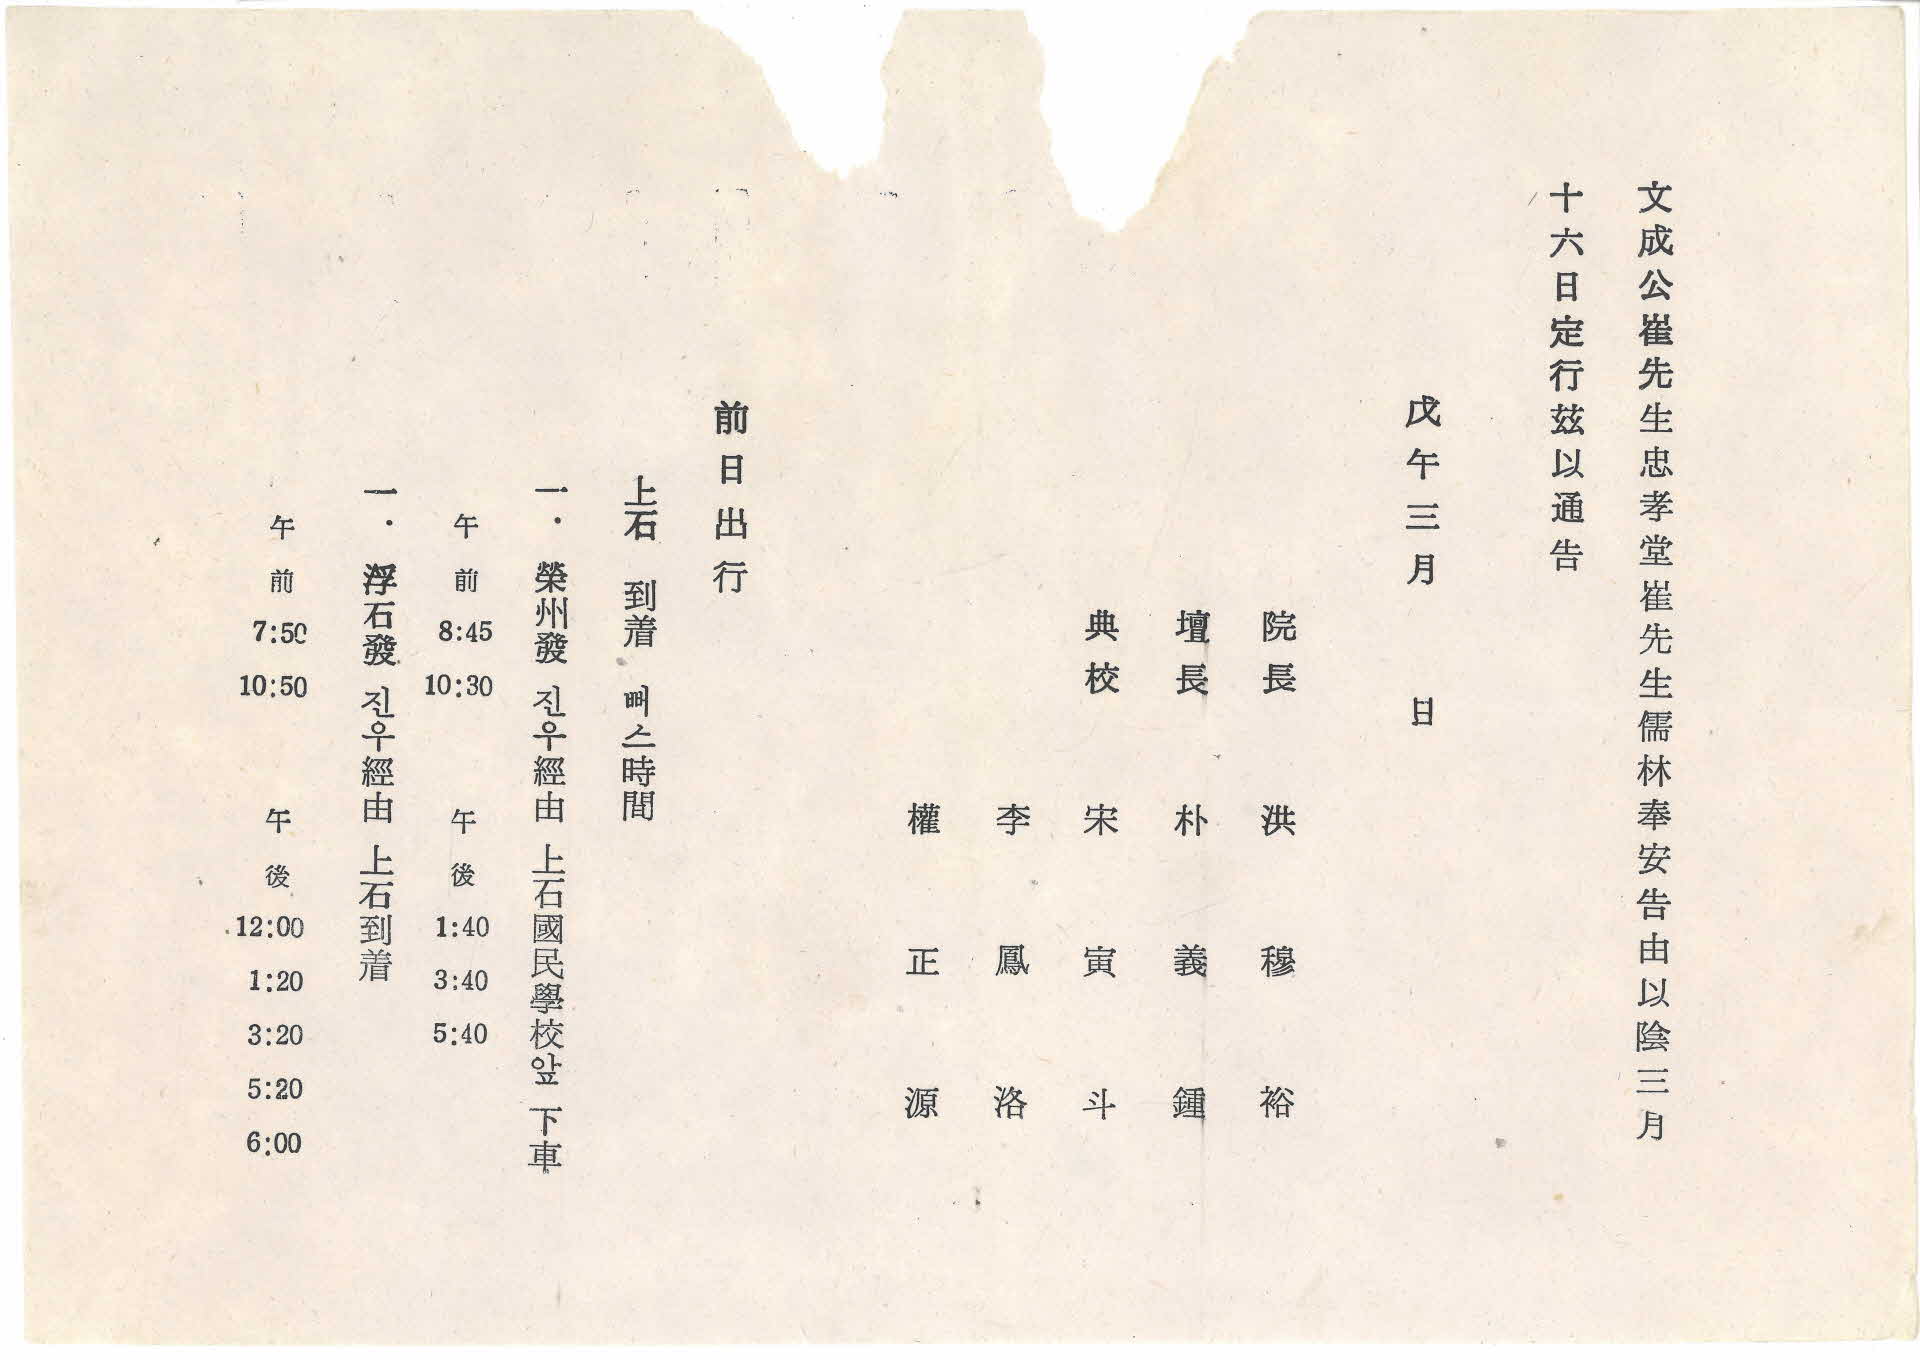 文成公崔先生忠孝堂崔先生儒林奉安告由以陰三月
十六日定行玆以通告
戊午三月 日
院長 洪穆裕
壇長 朴義鍾
典校 宋寅斗
李鳳洛
權正源
前日出行
上石 到着 뻐스時間
一. 榮州發 진우經由 上石國民學校앞 下車
午前 8:45 10:30 午後 1:40 3:40 5:40
一. 浮石發 진우經由 上石到着
午前 7:50 10:50 午後 12:00 1:20 3:20 5:20 6:00